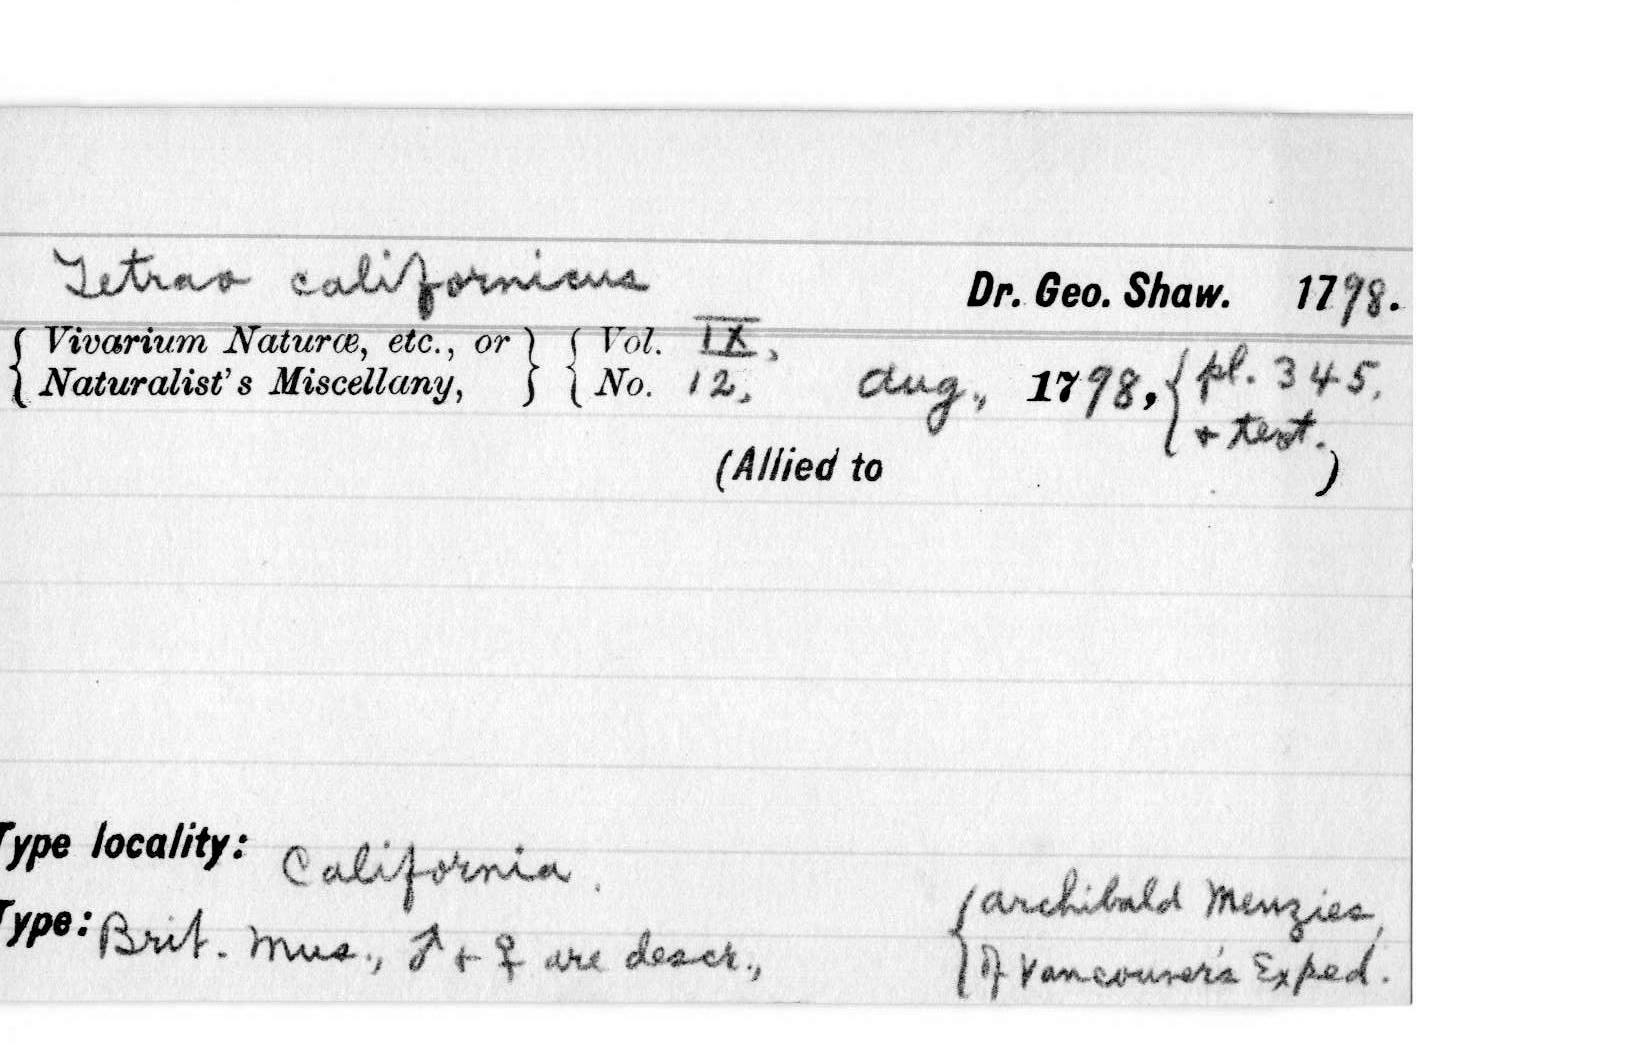 Tetrao californicus Dr. Geo. Shaw. 1798.
{ Vivarium Naturæ, etc., or } { Vol. IX,
{ Naturalist's Miscellany, } { No. 12, Aug., 1798, { pl. 345,
+ text.
(Allied to )
Type locality: California.
Type: Brit. Mus., ♂ + ♀ are descr., { Archibald Menzies,
{ of Vancouver's Exped.